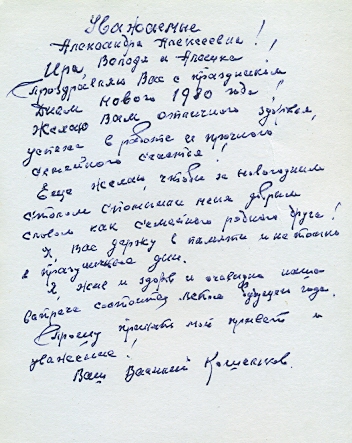 Уважаемые
Александра Алексеевна!
Ира, Володя и Аленка!
Поздравляю Вас с праздником
Днем Нового 1980 года!
Желаю Вам отличного здоровья,
успеха в работе и прочного
семейного счастья!
Еще желаю, чтобы за новогодним
столом вспомнили меня добрым
словом как семейного родного друга!
Я Вас держу в памяти и не только
в праздничные дни.
Я жив и здоров и очевидно наша
встреча состоится летом будущего года.
Прошу принять мой привет и
уважение!
Ваш Василий